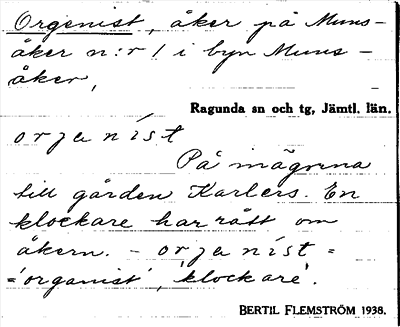 Orgenist, åker på Muns-
åker n:r 1 i byn Muns-
åker,
Ragunda sn och tg, Jämtl. län.
orjaníst
På inägorna
till gården Karlers. En
klockare har rått om
åkern. – orjaníst =
= 'organist', 'klockare'.
BERTIL FLEMSTRÖM 1938.